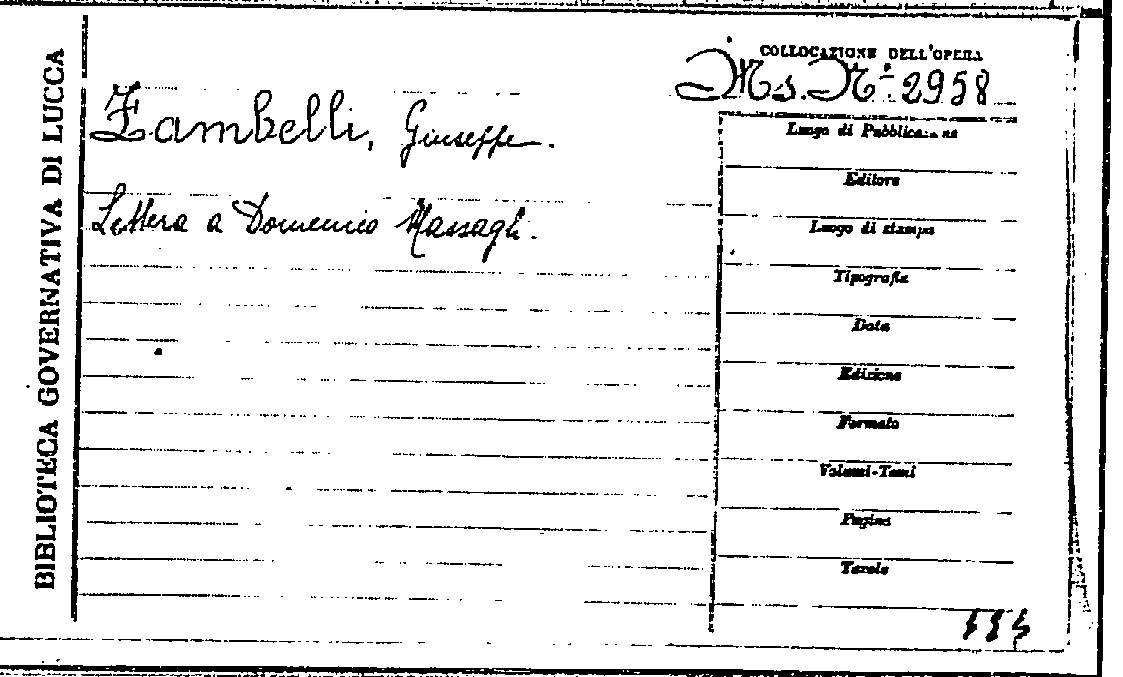 BIBLIOTECA GOVERNATIVA DI LUCCA
COLLOCAZIONE DELL'OPERA
Ms. Nº. 2958
Zambelli, Giuseppe.
Lettera a Domenico Massagli.
Luogo di Pubblicazione
Editore
Luogo di stampa
Tipografia
Data
Edizione
Formato
Volumi-Tomi
Pagine
Tavole